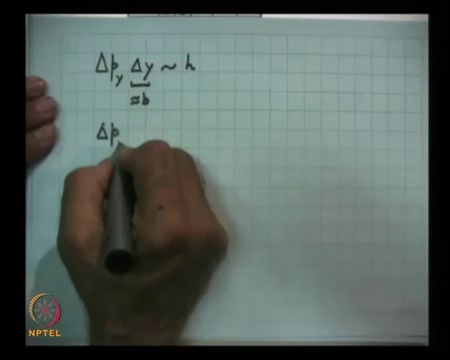 Δp_y Δy ~ h
≈b
Δp
NPTEL